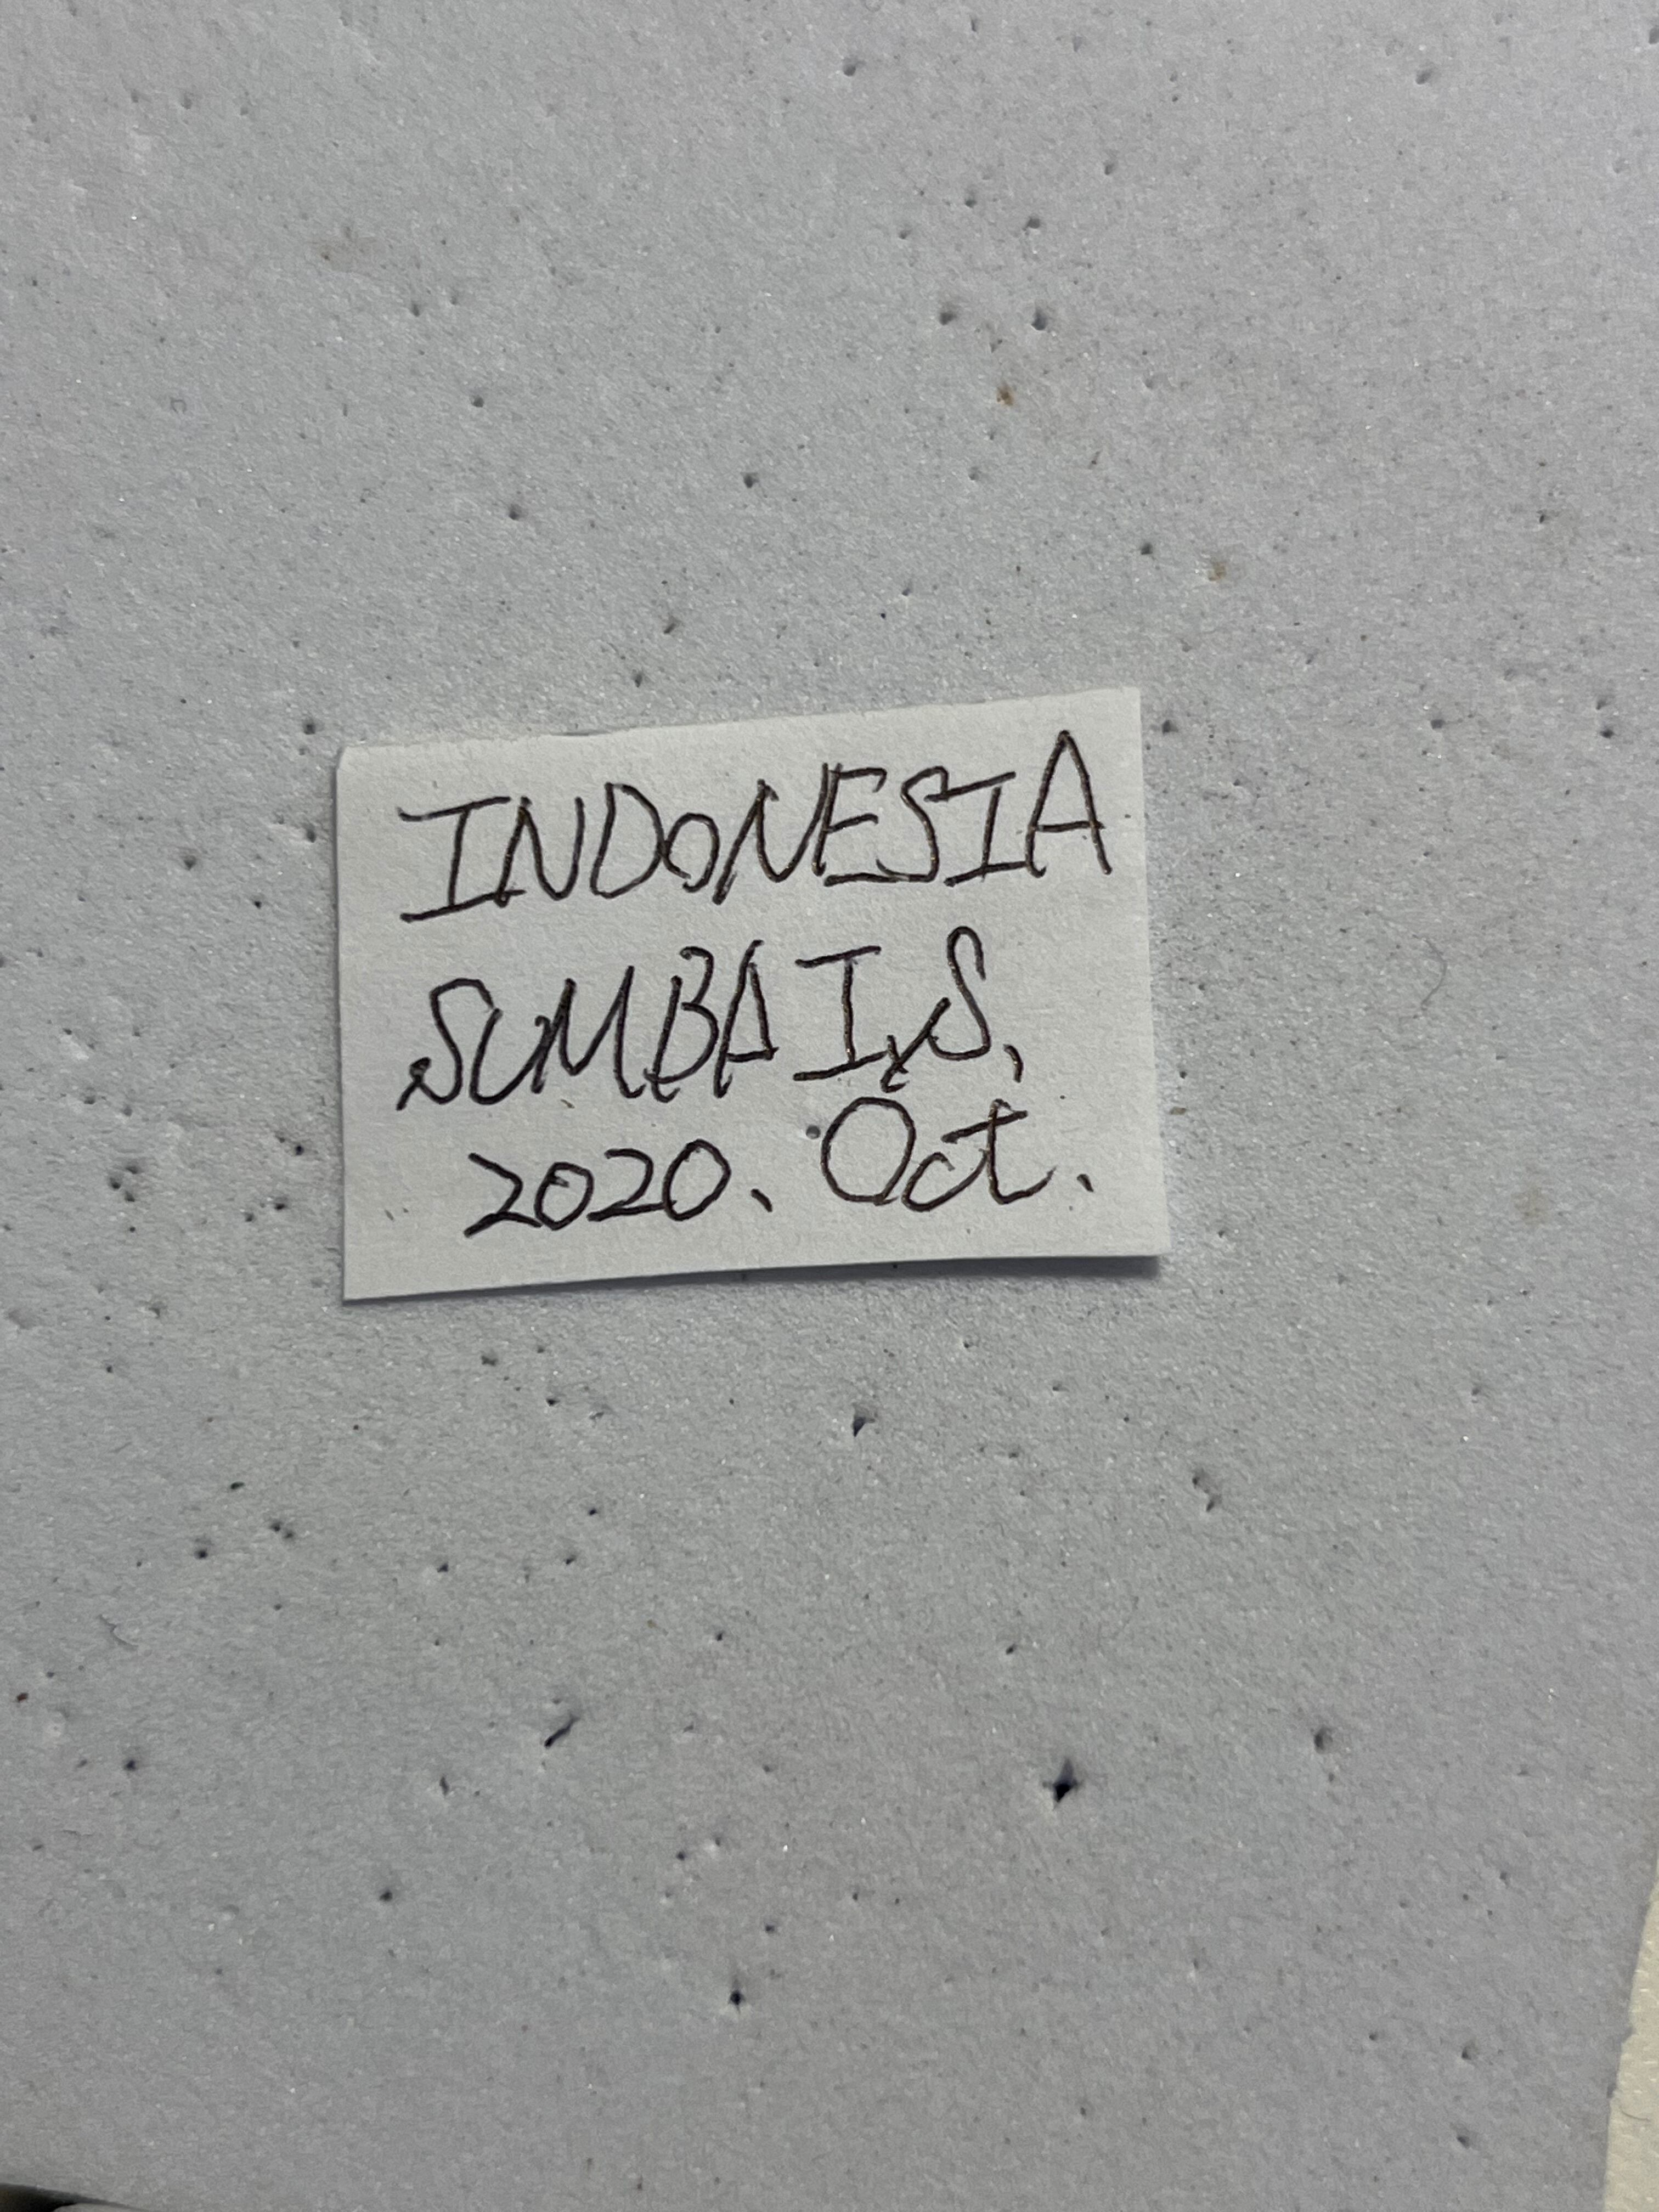 INDONESIA
SUMBA I,S.
2020. Oct.